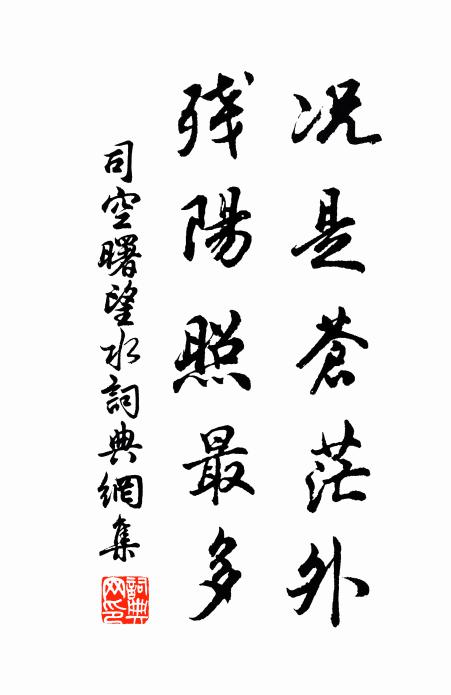 况是蒼茫外
残陽照最多
司空曙望水詞典網集
詞典網印